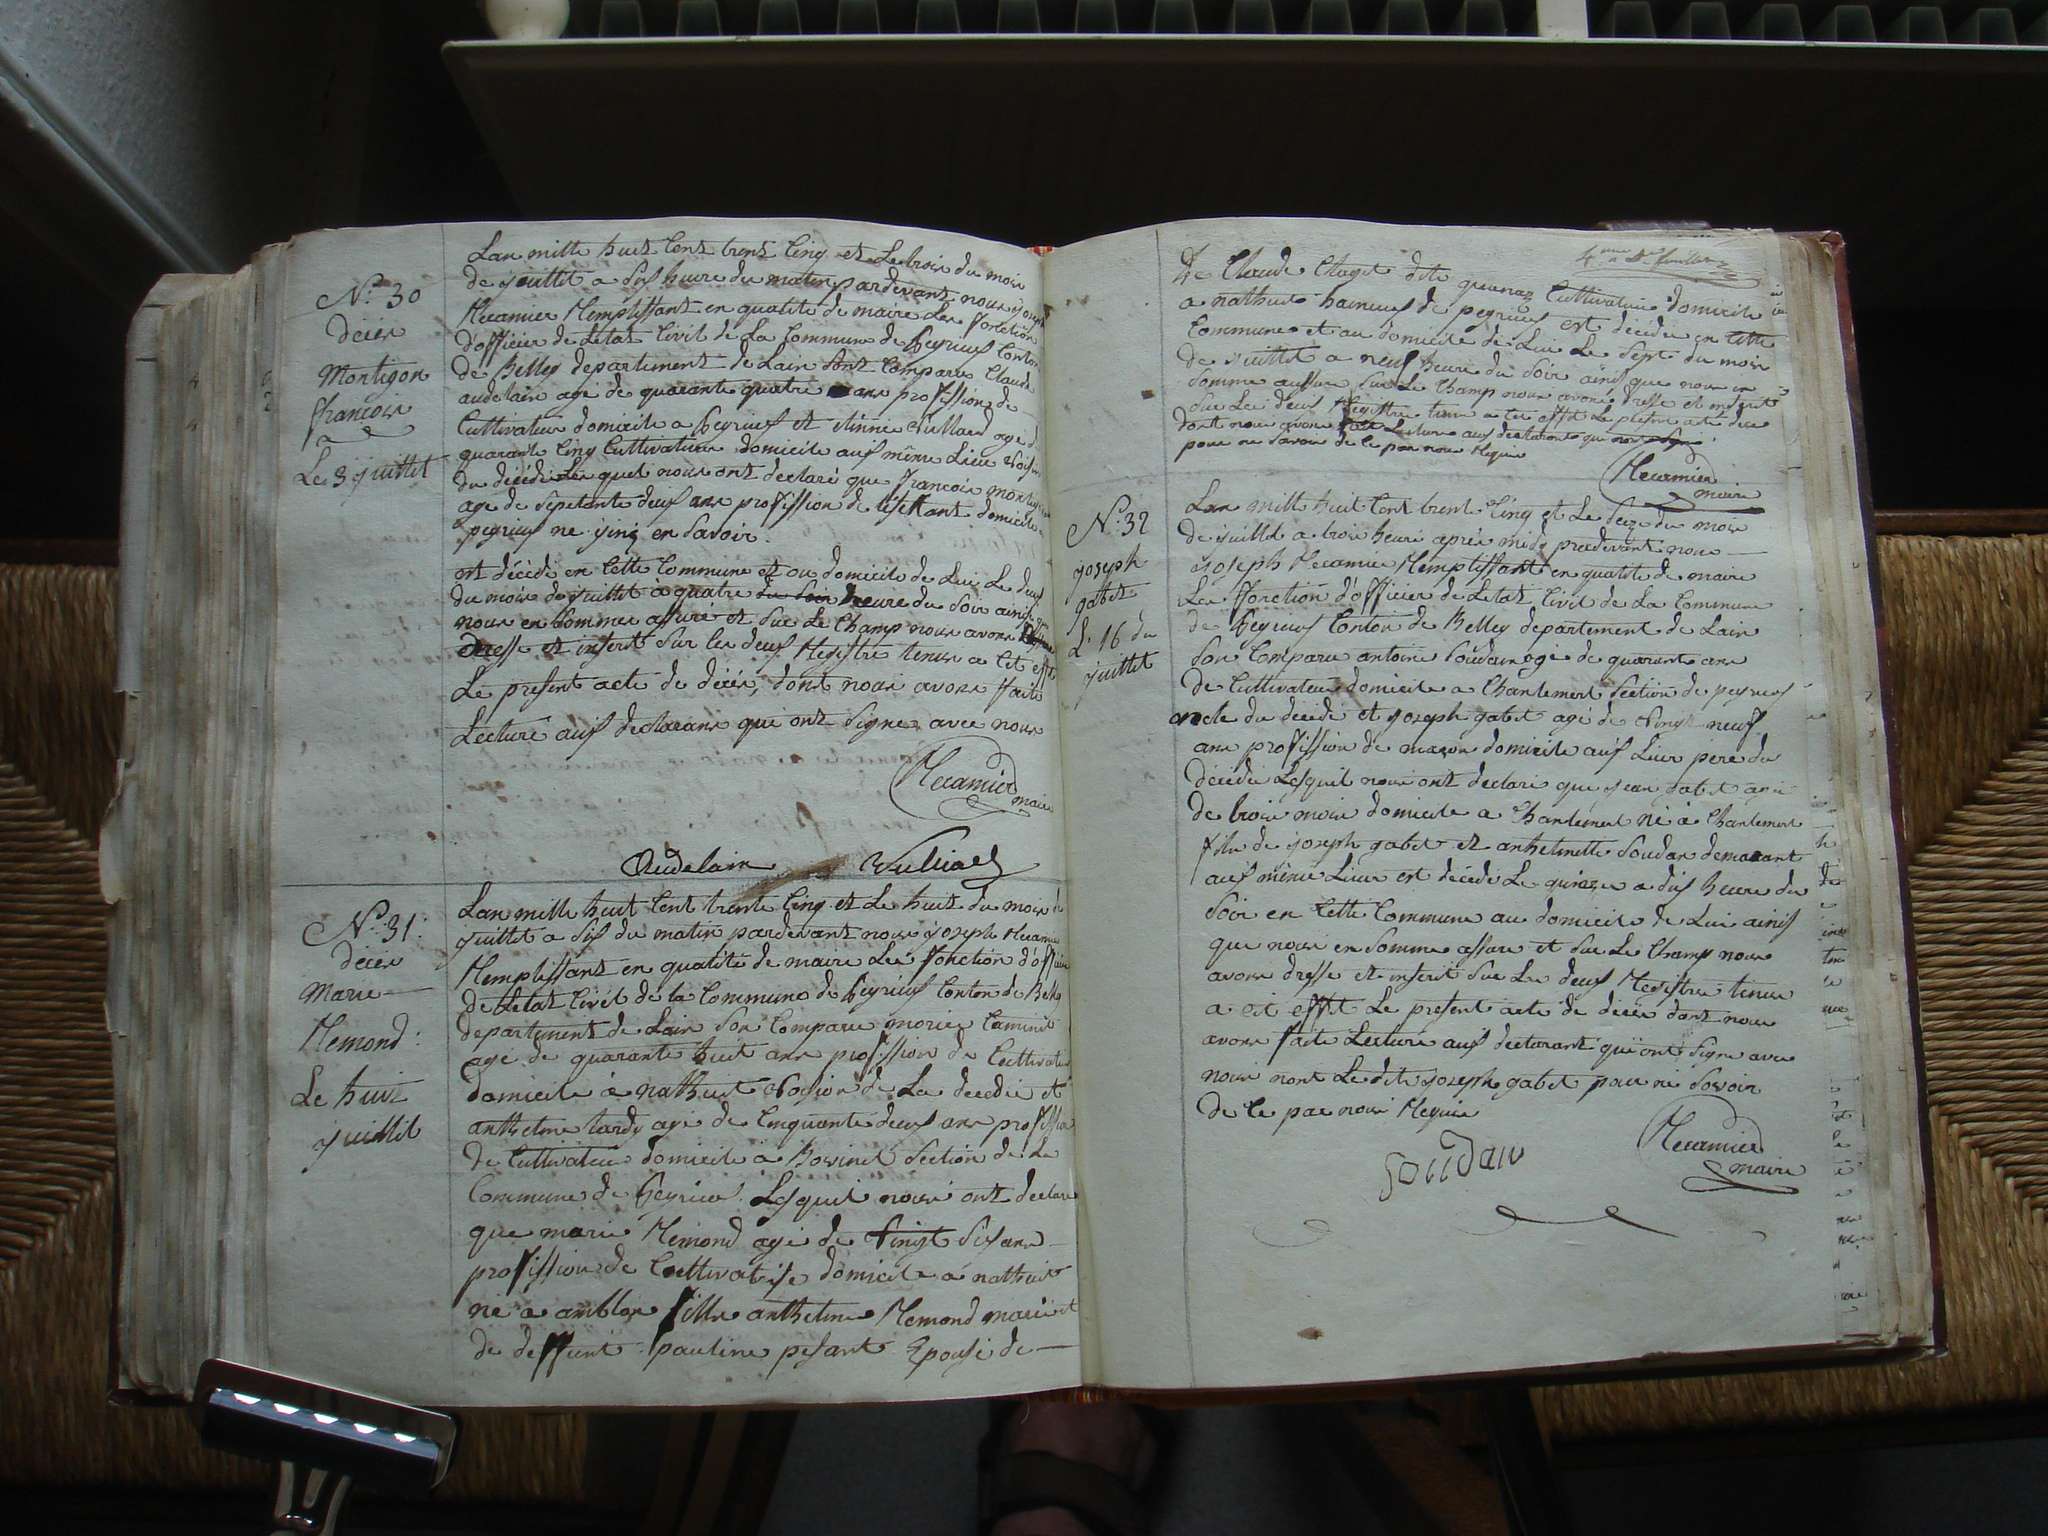 N.° 30
décés
Montigon
francois
Le 3 juillet
Lan mille huit Cent trent Cinq et Le trois du mois
de juillet a dix heure du matin pardevant nous joseph
Recamier Remplissant en qualité de maire Les fonction
d'officier de Letat Civil de La Commune de Peyrieuf Conton
de Belley departement de Lain sont Comparu Claude
audelain agé de quarante quatre ans profission de
Cultivateur domicile a Peyrieuf et
quarante Cinq Cultivateur domicile aux même Lieu Voisin
du décédé Les quel nous ont declaré que francois montigon
age de sepetante deux ans profission de domicile a
peyrieuf ne en Savoir
est décédé en Cette Commune et au domicile de Lui Le deux
du mois de juillet à quatre du soir heure du Soir ainsi
nous en Sommes assuré et Sur Le Champ nous avons
dresse et inserit Sur les deux Registre tenus a Cet effet
Le present acte de décés, dont nous avons faite
Lecture aux declarans qui ont Signe avec nous
Recamier
maire
Audelain Vulliod
N.° 31:
décés
Marie
Remond:
Le huit
juillet
Lan mille huit Cent trente Cinq et Le huit du mois de
juillet a Six du matin pardevant nous joseph Recamier
Remplissant en qualité de maire Les fonction d'officier
de Letat Civil de la Commune de Peyrieuf Conton de Belley
departement de Lain Son Comparu
age de quarante huit ans profission de Cultivateur
domicile à nattuit Voision de La decedée et
anthelme tardy agé de Cinquante deux ans profission
de Cultivateur domicile a Section de La
Commune de Peyrieu Lesquel nous ont declare
que marie Remond agé de Vingt Six ans
profission de Cultivatrise domicile a nattuit
né a amblon fille anthelme Remond marie et
de deffunt pauline pesant Epouse de
de Claude dit Cultivateur domicile
a nattuit hameuf de peyrieuf est decedée en Cette
Commune et au domicile de Lui Le Sept du mois
de juillet a neuf heure du Soir ainsi que nous en
Somme assure Sur Le Champ nous avons dresse et inserit
Sur Les deux Registre tenu a Cet effet Le present acte
dont nous avons faite Lecture aux declarant qui
pour ne Savoir de Ce par nous Requis
Recamier
maire
N.° 32
joseph
gabet
L. 16 du
juillet
Lan mille huit Cent trente Cinq et Le Seize du mois
de juillet a trois heure après midy pardevant nous
joseph Recamier Remplissant en qualité de maire
Les fonction d'officier de Letat Civil de La Commune
de Peyrieuf Conton de Belley departement de Lain
Son Comparu antoine Soudan agé de quarant ans
de Cultivateur domicile a Chantemert Section de peyrieuf
oncle du décédé et joseph gabet agé de Vingt neuf
ans profission de maçon domicile aux Lieu pere du
décédé Lesquel nous ont declaré que jean gabet agé
de trois mois domicile a Chantemert né à Chantemert
fils de joseph gabet et anthelmette Soudan demeurant
aux même Lieu est décédé Le quinze a dix heure du
Soir en Cette Commune au domicile de Lui ainsi
que nous en Somme assure et Sur Le Champ nous
avons dresse et inserit Sur Les deux Registre tenu
a Cet effet Le present acte de décés dont nous
avons faite Lecture aux declarant qui ont Signe avec
nous nont Le dit joseph gabet pour ne Savoir
de Ce par nous Requis
Soudan
Recamier
maire